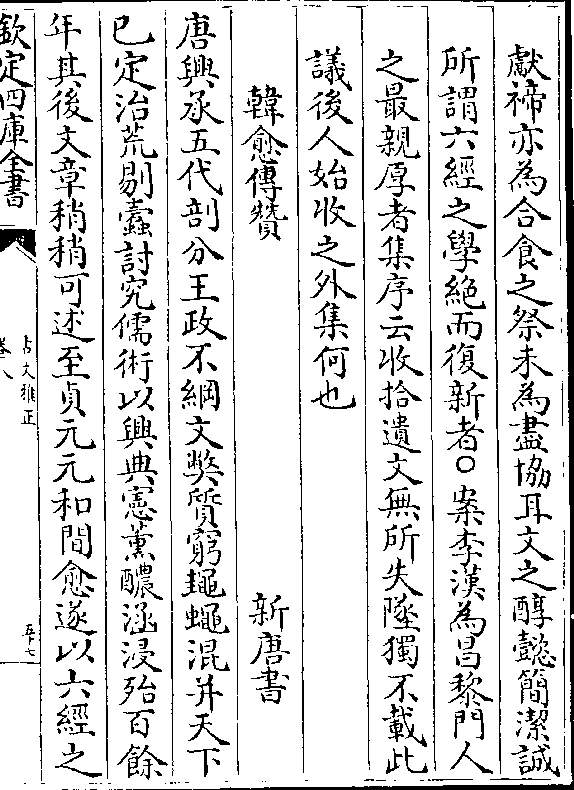 獻禘亦為合食之祭未為盡協耳文之醇懿簡潔誠
所謂六經之學絶而復新者○案李漢為昌黎門人
之最親厚者集序云收拾遺文無所失墜獨不載此
議後人始收之外集何也
韓愈傳贊　新唐書
唐興承五代剖分王政不綱文獘質窮䵷蠅混并天下
已定治荒剔蠹討究儒術以興典憲薰醲涵浸殆百餘
年其後文章稍稍可述至貞元元和間愈遂以六經之
欽定四庫全書
古文雅正
卷八
五十七